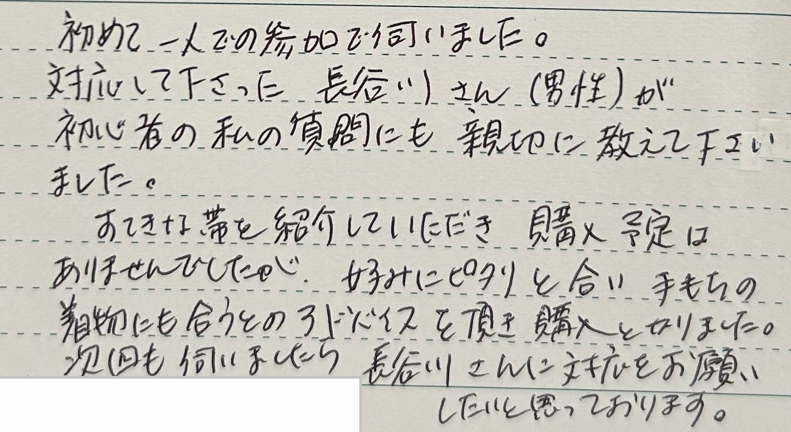 初めて一人での参加で伺いました。
対応して下さった 長谷川さん(男性)が
初心者の私の質問にも 親切に教えて下さい
ました。
すてきな帯を紹介していただき 購入予定は
ありませんでしたが、好みにピタリと合い 手もちの
着物にも合うとのアドバイスを頂き購入となりました。
次回も伺いましたら 長谷川さんに対応をお願い
したいと思っております。